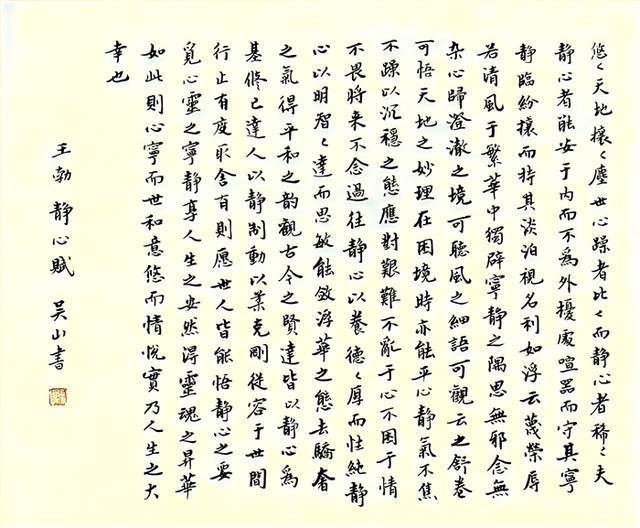 悠々天地攘々塵世心躁者比々而静心者稀々夫
静心者能安于内而不為外擾處喧嚣而守其寧
静臨紛攘而持其淡泊視名利如浮云蔑榮辱
若清風于繁華中獨辟寧静之隅思無邪念無
杂心歸澄澈之境可聽風之細語可觀云之舒卷
可悟天地之妙理在困境時亦能平心静氣不焦
不躁以沉穩之態應對艱難不亂于心不困于情
不畏將来不念過往静心以養德々厚而性純静
心以明智々達而思敏能斂浮華之態去驕奢
之氣得平和之韵觀古今之賢達皆以静心為
基修己達人以静制動以柔克剛從容于世間
行止有度取舍有則愿世人皆能悟静心之要
覓心靈之寧静享人生之安然得靈魂之昇華
如此則心寧而世和意悠而情悅實乃人生之大
幸也
王勃静心賦 吴山書